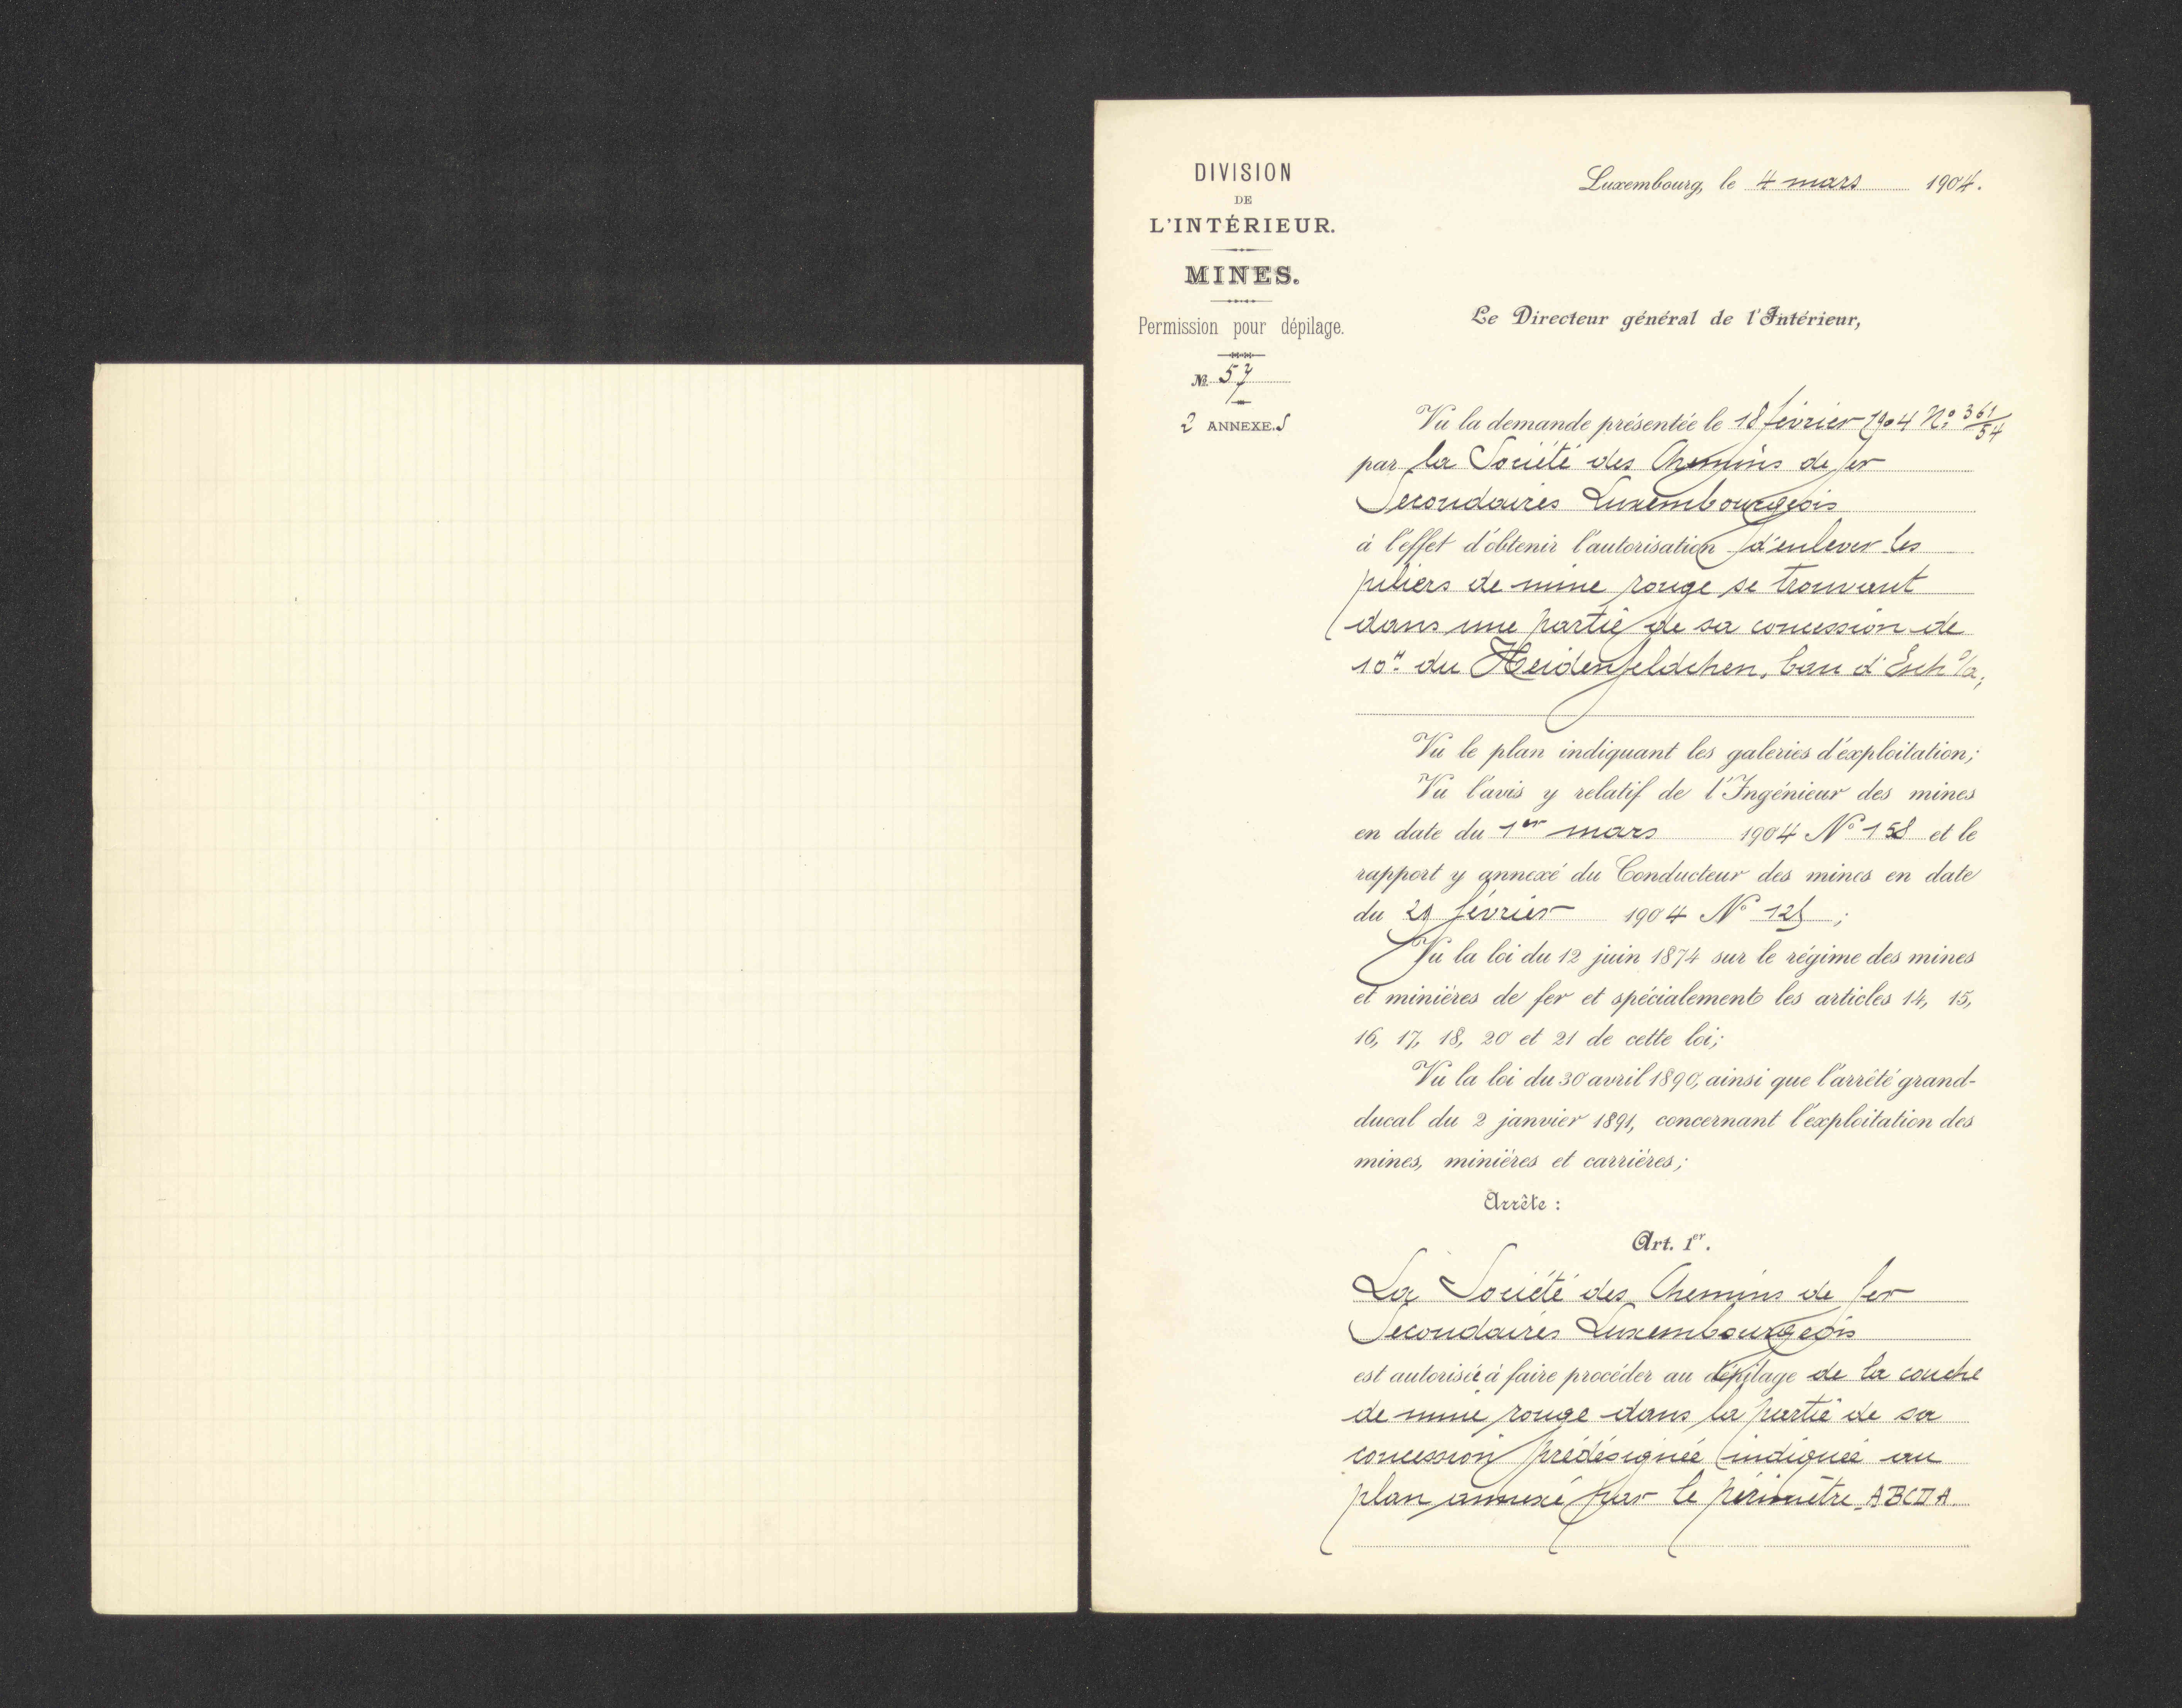 DIVISION
DE
L'INTÉRIEUR.
MINES.
Permission pour dépilage.
№ 57
2 ANNEXES
Luxembourg, le 4 mars 1904.
Le Directeur général de l'Intérieur,
Vu la demande présentée le 18 février 1904 N° 361/54
par la Société des Chemins de fer
Secondaires Luxembourgeois
à l'effet d'obtenir l'autorisation d'enlever les
piliers de mine rouge se trouvant
dans une partie de sa concession de
10H. du Heidenfeldchen, ban d'Esch s/a;
Vu le plan indiquant les galeries d'exploitation;
Vu l'avis y relatif de l'Ingénieur des mines
en date du 1er mars 1904 N° 158 et le
rapport y annexé du Conducteur des mines en date
du février 1904 N°
Vu la loi du 12 juin 1874 sur le régime des mines
et minières de fer et spécialement les articles 14, 15,
16, 17, 18, 20 et 21 de cette loi;
Vu la loi du 30 avril 1890, ainsi que l'arrêté grand-
ducal du 2 janvier 1891, concernant l'exploitation des
mines, minières et carrières;
Arrête :
Art. 1er.
La Société des Chemins de fer
Secondaires Luxembourgeois
est autorisée à faire procéder au dépilage de la couche
de mine rouge dans la partie de sa
concession prédésignée indiquée au
plan annexé par le périmètre ABCDA